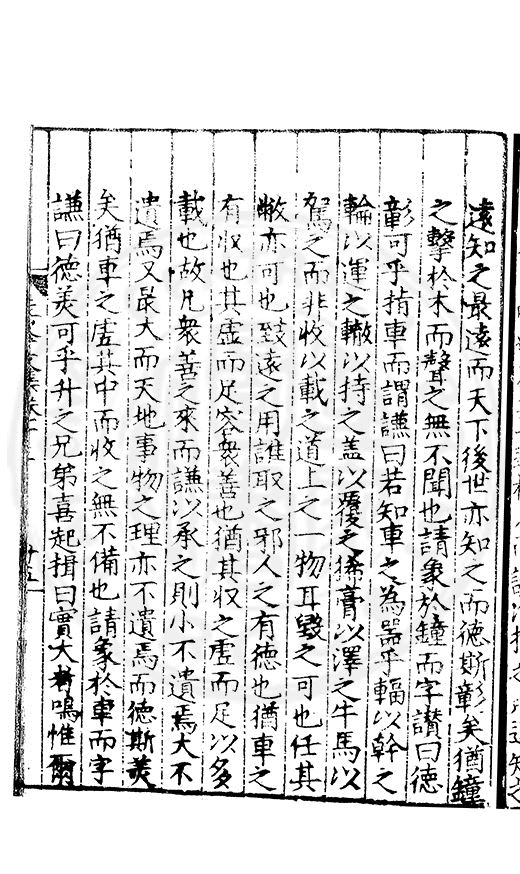 遠知之最遠而天下後世亦知之而德斯彰矣猶鐘
之擊於木而聲之無不聞也請象於鐘而字讃曰德
彰可乎指車而謂謙曰若知車之為噐乎輻以幹之
輪以運之轍以持之盖以覆之絺膏以澤之牛馬以
駕之而非收以載之道上之一物耳毀之可也任其
敝亦可也致遠之用誰取之邪人之有德也猶車之
有收也其虛而足容衆善也猶其収之虛而足以多
載也故凡衆善之来而謙以承之則小不遺焉大不
遺焉又最大而天地事物之理亦不遺焉而德斯羙
矣猶車之虛其中而收之無不備也請象於車而字
謙曰德羙可乎升之兄弟喜起揖曰實大者嗚惟爾